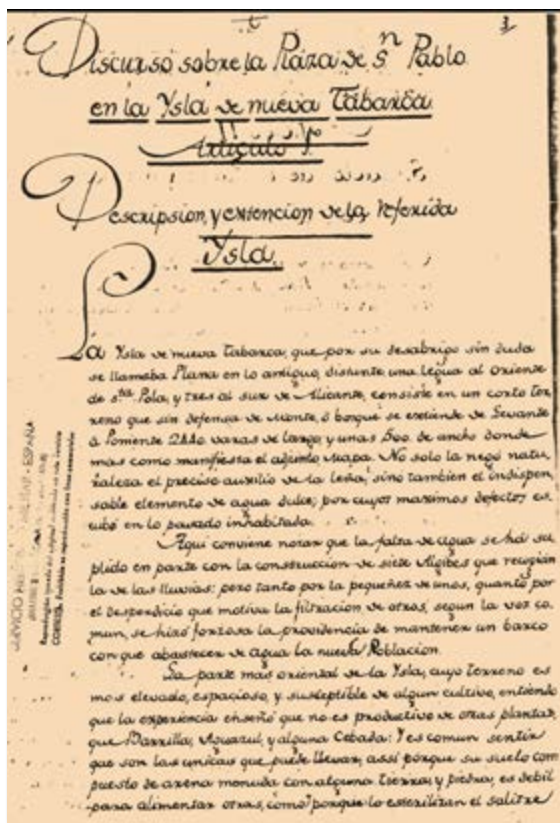 3
Discurso sobre la Plaza de Sn Pablo
en la Ysla de nueva Tabarca
Articulo 1º
Descripsion, y extencion de la referida
Ysla.
La Ysla de nueva Tabarca, que por su desabrigo sin duda
se llamaba Plana en lo antiguo, distante una legua al oriente
de sta Pola, y tres al sur de Alicante, consiste en un corto ter
reno que sin defensa de monte, ó borque se extiende de Levante
á Poniente 2440 varas de largo, y unas 500 de ancho donde
mas como manifiesta el adjunto Mapa. No solo la negó natu
raleza el preciso auxilio de la leña, sino tambien el indispen
sable elemento de agua dulce, por cuyos maximos defectos es
tubo en lo pasado inhabitada.
Aqui conviene notar que la falta de agua se há su
plido en parte con la construccion de siete Algibes que recogian
la de las lluvias: pero tanto por la pequeñez de unos, quanto por
el desperdicio que motiva la filtracion de otros, segun la voz co
mun, se hizó forzosa la providencia de mantener un barco
con que abastecer de agua la nueva Poblacion.
La parte mas oriental de la Ysla, cuyo terreno es
mas elevado, espacioso, y susceptible de algun cultivo, entiendo
que la experiencia enseñó que no es productivo de otras plantas,
que Barrilla, Aguazul, y alguna Cebada: Y es comun sentir
que son las unicas que puede llevar, assi porque su suelo com
puesto de arena menuda con alguna tierra, y piedra, es debil
para alimentar otras, como porque lo esterilizan el salitre